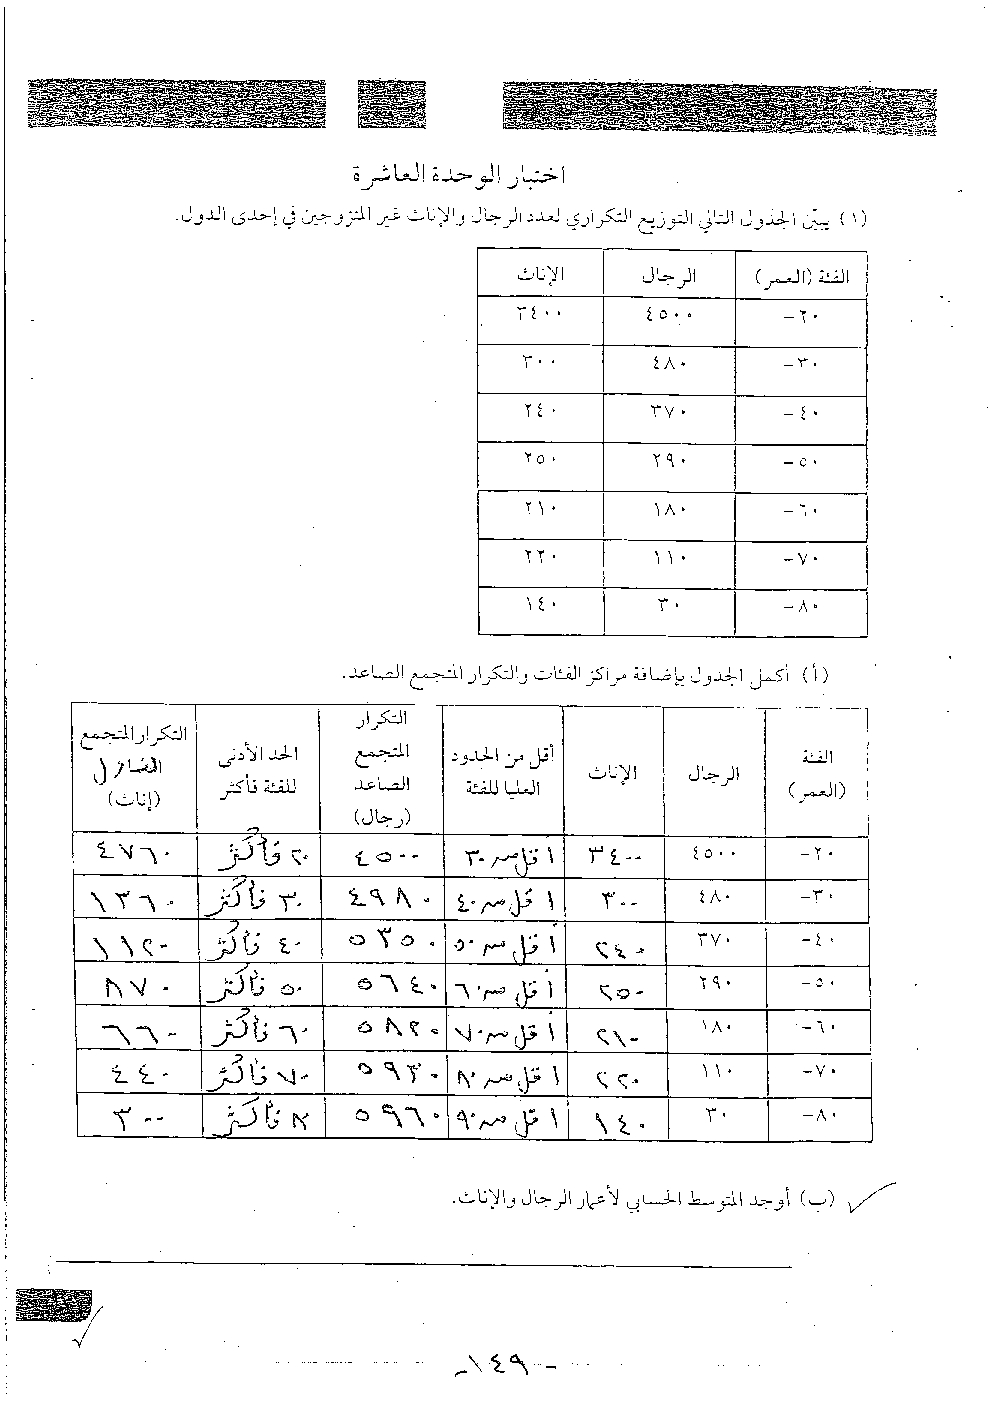 اختبار الوحدة العاشرة
(١) يبيّن الجدول التالي التوزيع التكراري لعدد الرجال والإناث غير المتزوجين في إحدى الدول.
الفئة (العمر) الرجال الإناث
٢٠– ٤٥٠٠ ٣٤٠٠
٣٠– ٤٨٠ ٣٠٠
٤٠– ٣٧٠ ٢٤٠
٥٠– ٢٩٠ ٢٥٠
٦٠– ١٨٠ ٢١٠
٧٠– ١١٠ ٢٢٠
٨٠– ٣٠ ١٤٠
(أ) أكمل الجدول بإضافة مراكز الفئات والتكرار المتجمع الصاعد.
الفئة (العمر) الرجال الإناث أقل من الحدود العليا للفئة التكرار المتجمع الصاعد (رجال) الحد الأدنى للفئة فأكثر التكرار المتجمع النازل (إناث)
٢٠– ٤٥٠٠ ٣٤٠٠ أقل من ٣٠ ٤٥٠٠ ٢٠ فأكثر ٤٧٦٠
٣٠– ٤٨٠ ٣٠٠ أقل من ٤٠ ٤٩٨٠ ٣٠ فأكثر ١٣٦٠
٤٠– ٣٧٠ ٢٤٠ أقل من ٥٠ ٥٣٥٠ ٤٠ فأكثر ١١٢٠
٥٠– ٢٩٠ ٢٥٠ أقل من ٦٠ ٥٦٤٠ ٥٠ فأكثر ٨٧٠
٦٠– ١٨٠ ٢١٠ أقل من ٧٠ ٥٨٢٠ ٦٠ فأكثر ٦٦٠
٧٠– ١١٠ ٢٢٠ أقل من ٨٠ ٥٩٣٠ ٧٠ فأكثر ٤٤٠
٨٠– ٣٠ ١٤٠ أقل من ٩٠ ٥٩٦٠ ٨٠ فأكثر ٣٠٠
(ب) أوجد المتوسط الحسابي لأعمار الرجال والإناث.
-١٤٩-